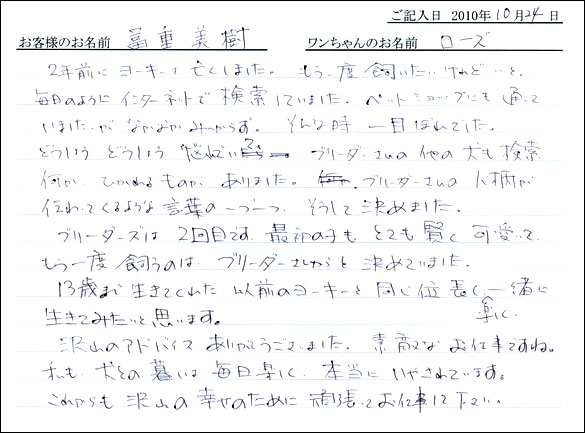 ご記入日 2010年10月24日
お客様のお名前 冨重美樹 ワンちゃんのお名前 ローズ
2年前に ヨーキーを亡くしました。 もう一度 飼いたい けれど…と、
毎日のように インターネットで 検索していました。 ペットショップにも 通って
いましたが なかなか みつからず。 そんな時、一目ぼれでした。
どうしよう どうしよう 悩んでいる ブリーダーさんの 他の犬も 検索
何か ひかれるものが ありました。 ブリーダーさんの 人柄が
伝わってくるような 言葉の一つ一つ、 そうして 決めました。
ブリーダーズは 2回目です。最初の子も とても 賢く 可愛いくて
もう一度 飼うのは、ブリーダーさんからと 決めていました。
13歳まで 生きてくれた 以前のヨーキーと 同じ位 長く、一緒に
楽しく
生きてみたいと 思います。
沢山のアドバイス ありがとうございました。 素敵な お仕事ですね。
私も 犬との 暮しは 毎日楽しく、本当に いやされています。
これからも 沢山の 幸せのために 頑張って お仕事して 下さい。